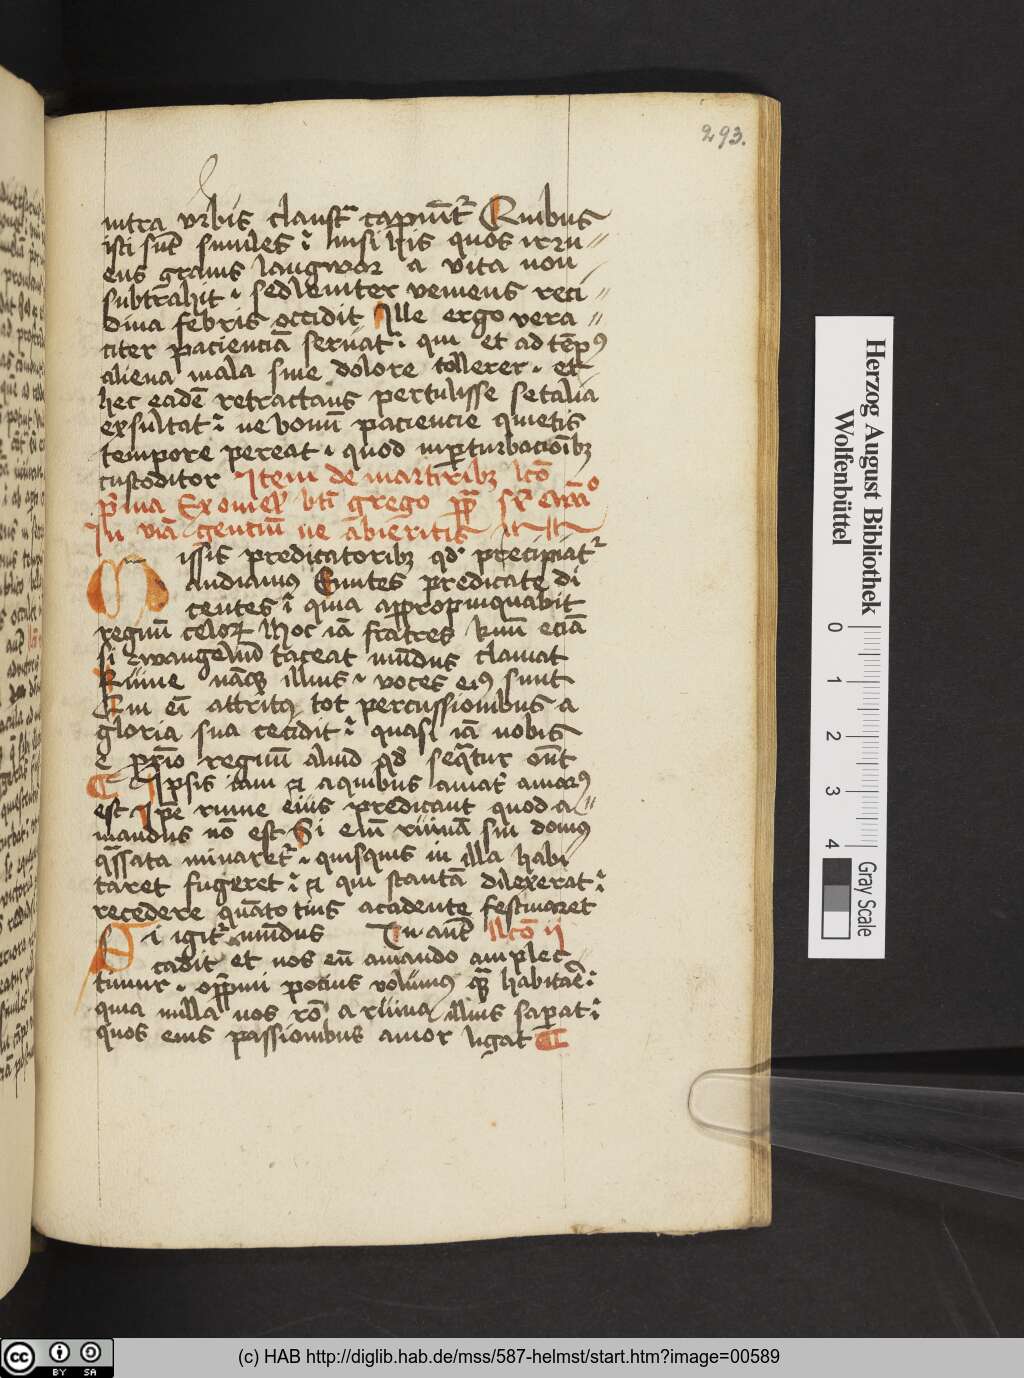 293.
intra urbis claustra capiuntur Quibus
isti sunt similes nisi his quos irru
ens gravis langwor a vita non
subtrahit sed leniter veniens reci
diva febris occidit Ille ergo vera
citer pacienciam servat qui et ad tempus
aliena mala sine dolore tollerer et
hec eadem retractans pertulisse se talia
exsultat ne bonum paciencie quietis
tempore pereat quod in perturbacionibz
custoditor Item de martiribz lco
prima Ex omel bti grego pp
In viam gencium ne abieritis
Missis predicatoribz qd precipiatr
audiamus Euntes predicate di
centes quia appropinquabit
regnum celorum Hoc iam fratres kmi eciam
si ewangelium taceat mundus clamat
Ruine namque illius voces eius sunt
Qui enim attritus tot percussionibus a
gloria sua cecidit quasi iam nobis
e proximo regnum aliud quod sequatur ostendit
Ipsis iam et a quibus amatur amarus
est Ipse ruine eius predicant quod a
mandus non est Si enim ruinam sui domus
quassata minaretur quisquis in illa habi
taret fugeret et qui stantem dilexerat
recedere quanto cius a cadente festinaret
Si igitur mundus Tu aut lco ii
cadit et nos eum amando amplec
timur opprimi pocius volumus quam habitare
quia nulla nos ro a ruina illius separat
quos eius passionibus amor ligat
Herzog August Bibliothek
Wolfenbüttel
0 1 2 3 4
Gray Scale
cc BY SA
(c) HAB http://diglib.hab.de/mss/587-helmst/start.htm?image=00589